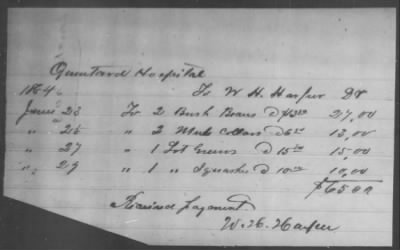 Quintard Hospital
1864 To W. H. Harper Dr
June 23 To 2 Bush Beans @ 13.50 27,00
" 25 " 2 Mule Collars @ 6.50 13,00
" 27 " 1 Lot Greens @ 15.00 15,00
" 29 " 1 " Squashes @ 10.00 10,00
$65.00
Received payment
W. H. Harper